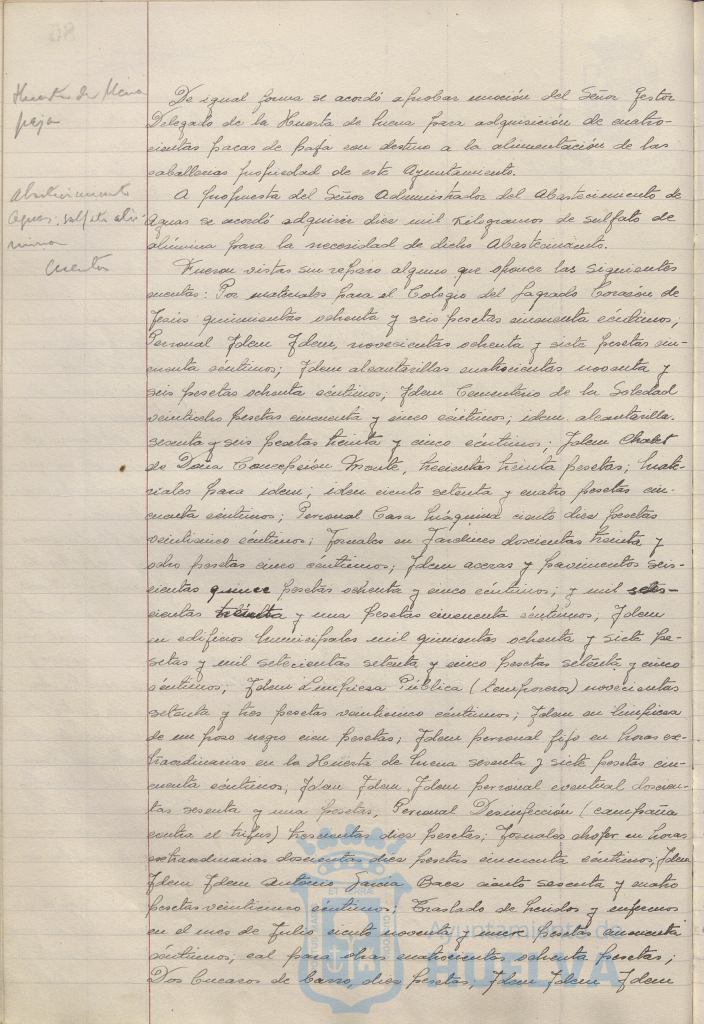 Huerta de Mena
paja
De igual forma se acordó aprobar moción del Señor Gestor
Delegado de la Huerta de Mena para adquisición de cuatro-
cientas pacas de paja con destino a la alimentación de las
caballerías propiedad de este Ayuntamiento.
Abastecimiento
Aguas. sulfato alú-
mina
A propuesta del Señor Administrador del Abastecimiento de
Aguas se acordó adquirir diez mil Kilogramos de sulfato de
alúmina para la necesidad de dicho Abastecimiento.
Cuentas
Fueron vistas sin reparo alguno que oponer las siguientes
cuentas: Por materiales para el Colegio del Sagrado Corazón de
Jesús quinientas ochenta y seis pesetas cincuenta céntimos;
Personal Idem Idem, novecientas ochenta y siete pesetas cin-
cuenta céntimos; Idem alcantarillas cuatrocientas noventa y
seis pesetas ochenta céntimos; Idem Cementerio de la Soledad
veintiocho pesetas cincuenta y cinco céntimos; idem alcantarilla
sesenta y seis pesetas treinta y cinco céntimos; Idem Chalet
de Doña Concepción Monte, trescientas treinta pesetas; Mate-
riales para idem; idem ciento setenta y cuatro pesetas cin-
cuenta céntimos; Personal Casa Máquina ciento diez pesetas
veinticinco céntimos; Jornales en Jardines doscientas treinta y
ocho pesetas cinco céntimos; Idem aceras y pavimentos seis-
cientas quince pesetas ochenta y cinco céntimos; y mil
cientas treinta y una pesetas cincuenta céntimos; Idem
en edificios Municipales mil quinientas ochenta y siete pe-
setas y mil setecientas setenta y cinco pesetas setenta y cinco
céntimos; Idem Limpieza Pública (temporeros) novecientas
setenta y tres pesetas veinticinco céntimos; Idem en limpieza
de un pozo negro cien pesetas; Idem personal fijo en horas ex-
traordinarias en la Huerta de Mena sesenta y siete pesetas cin-
cuenta céntimos; Idem Idem, Idem personal eventual doscien-
tas sesenta y una pesetas, Personal Desinfección (campaña
contra el tifus) trescientas diez pesetas; Jornales chofer en horas
extraordinarias doscientas diez pesetas cincuenta céntimos; Idem
Idem Idem Antonio García Baez ciento sesenta y cuatro
pesetas veinticinco céntimos; Traslado de heridos y enfermos
en el mes de Julio ciento noventa y nueve pesetas cincuenta
céntimos, cal para obras cuatrocientas ochenta pesetas;
Dos bucaros de barro, diez pesetas; Idem Idem Idem
Ayuntamiento de
HUELVA